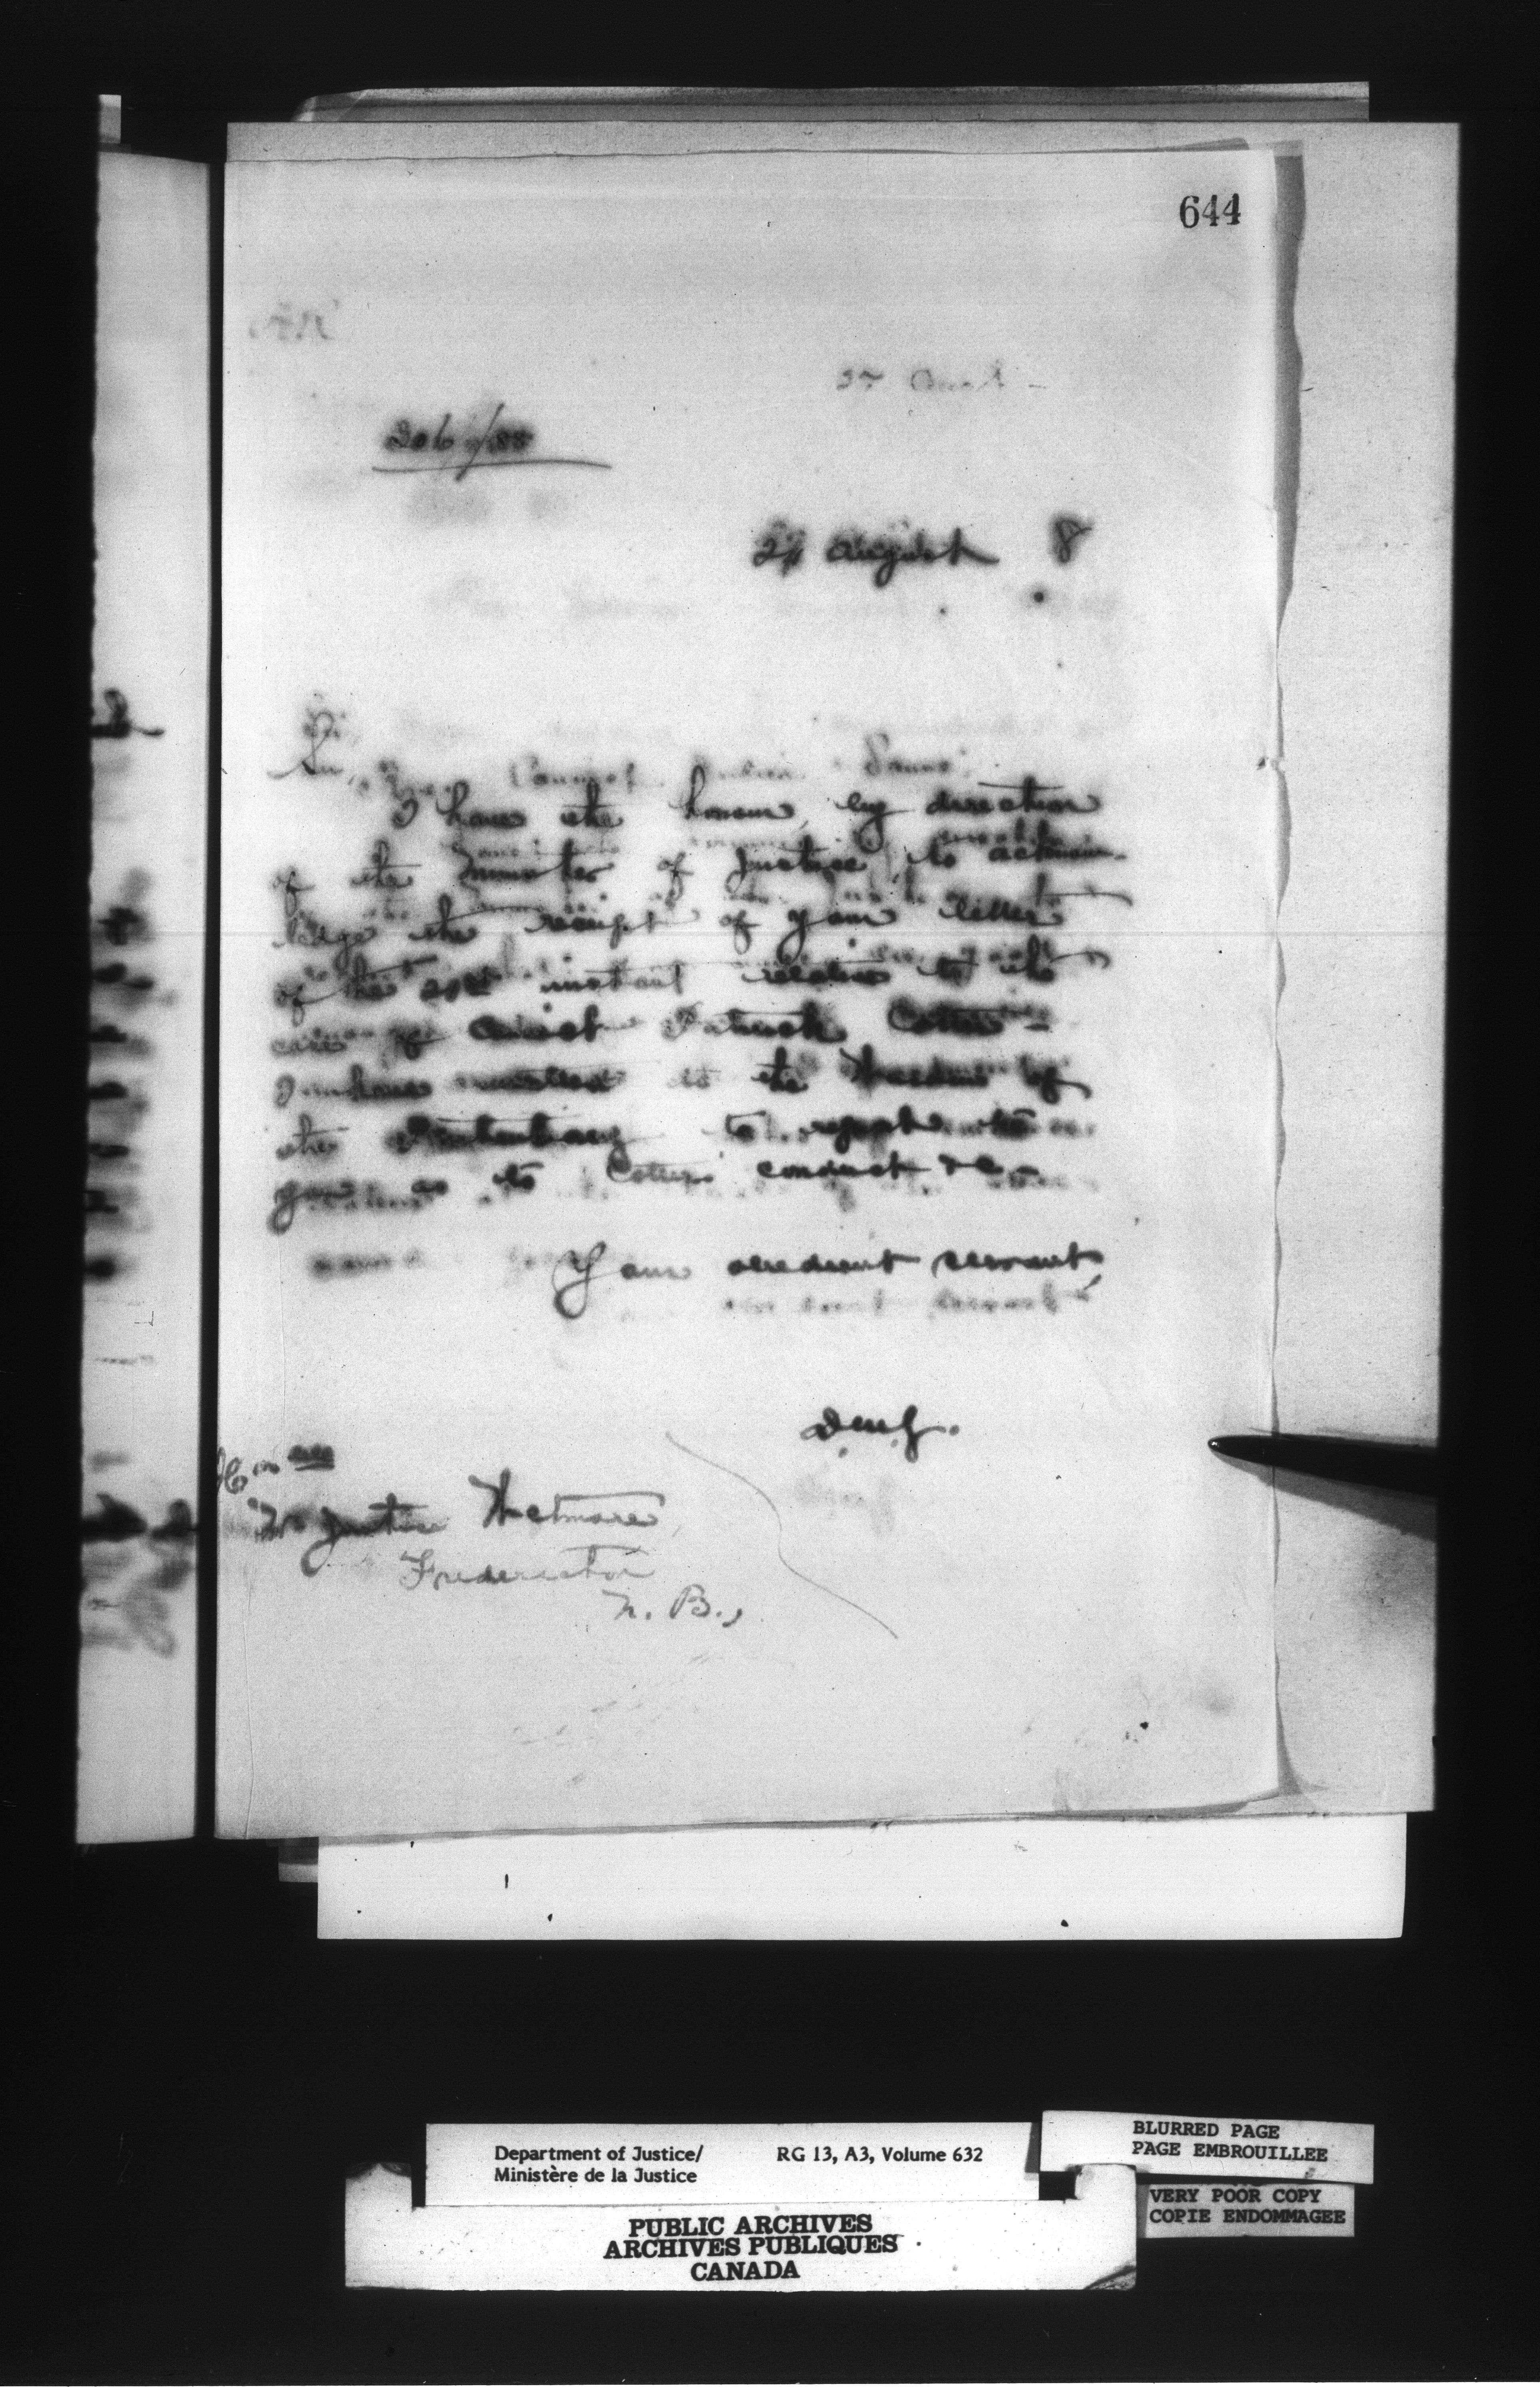 644
27 August
206/88
24 August 8
Sir,
I have the honour, by direction
of the Minister of Justice, to acknow-
ledge the receipt of your letter
of the instant relative to the
case of Convict Patrick Cotter -
I have written to the Warden of
the Penitentiary to report to
you as to Cotter's conduct &c -
Your obedient servant
Hon
Mr Justice Wetmore
Fredericton
N. B.,
Department of Justice/ RG 13, A3, Volume 632
Ministère de la Justice
BLURRED PAGE
PAGE EMBROUILLEE
VERY POOR COPY
COPIE ENDOMMAGEE
PUBLIC ARCHIVES
ARCHIVES PUBLIQUES
CANADA